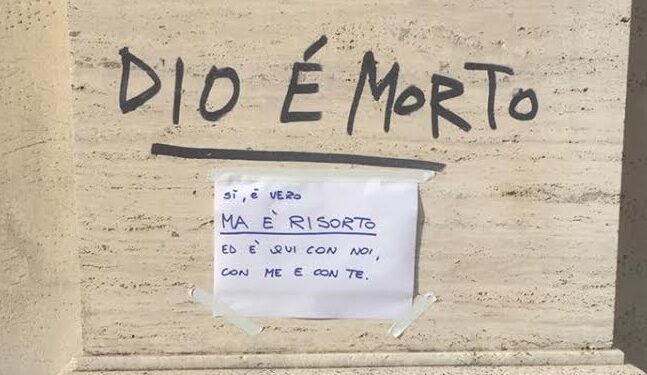 DIO É MORTO
SÌ, È VERO
MA È RISORTO
ED È QUI CON NOI,
CON ME E CON TE.